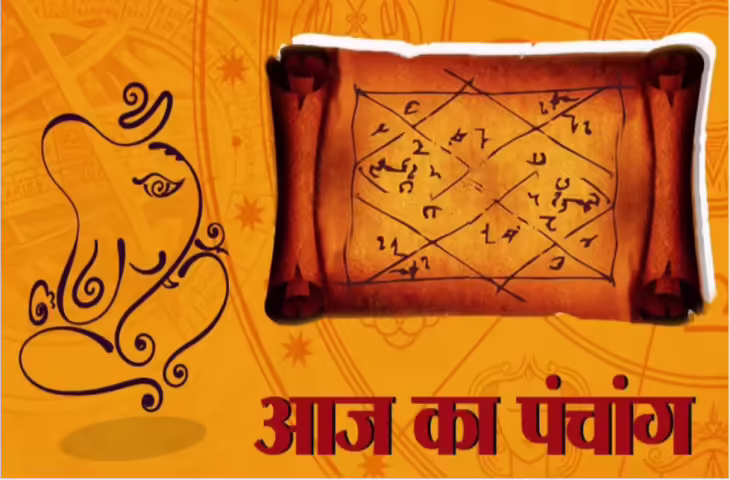 आज का पंचांग